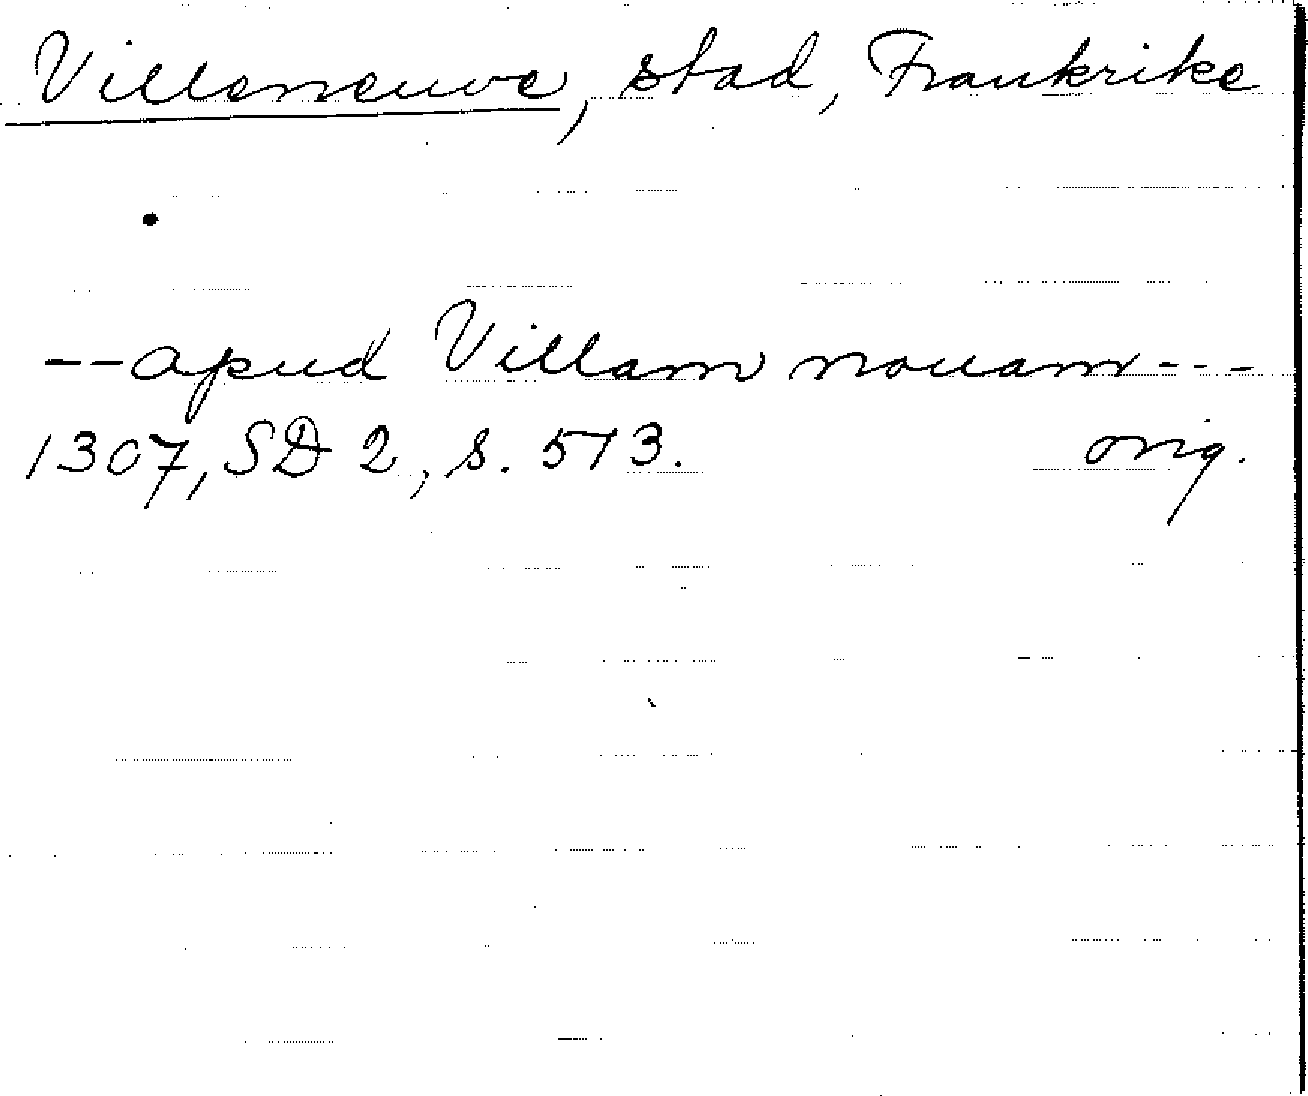 Villeneuve, stad, Frankrike
--apud Villam nouam---
1307, SD 2, s. 513. orig.